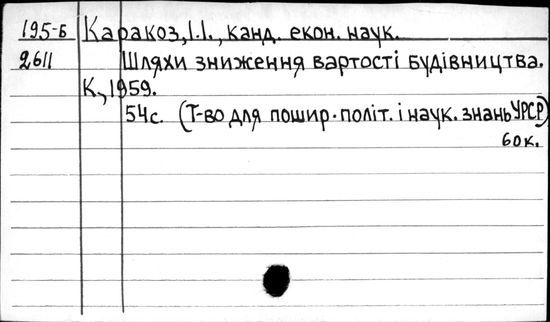 195-Б Каракоз, І.І., канд. екон. наук.
2611 Шляхи зниження вартості будівництва.
К., 1959.
54с. (Т-во для пошир. політ. і наук. знань УРСР)
60к.